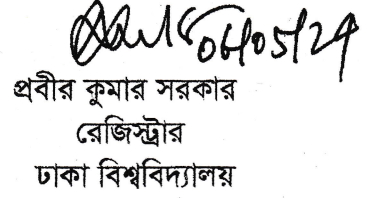 06/05/24
প্রবীর কুমার সরকার
রেজিস্ট্রার
ঢাকা বিশ্ববিদ্যালয়